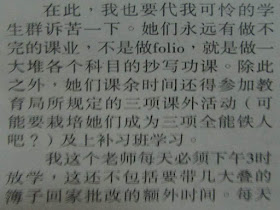 在此，我也要代我可怜的学
生群诉苦一下。她们永远有做不
完的课业，不是做folio，就是做一
大堆各个科目的抄写功课。除此
之外，她们课余时间还得参加教
育局所规定的三项课外活动（可
能要栽培她们成为三项全能铁人
吧？）及上补习班学习。
我这个老师每天必须下午3时
放学，这还不包括要带几大叠的
簿子回家批改的额外时间。每天